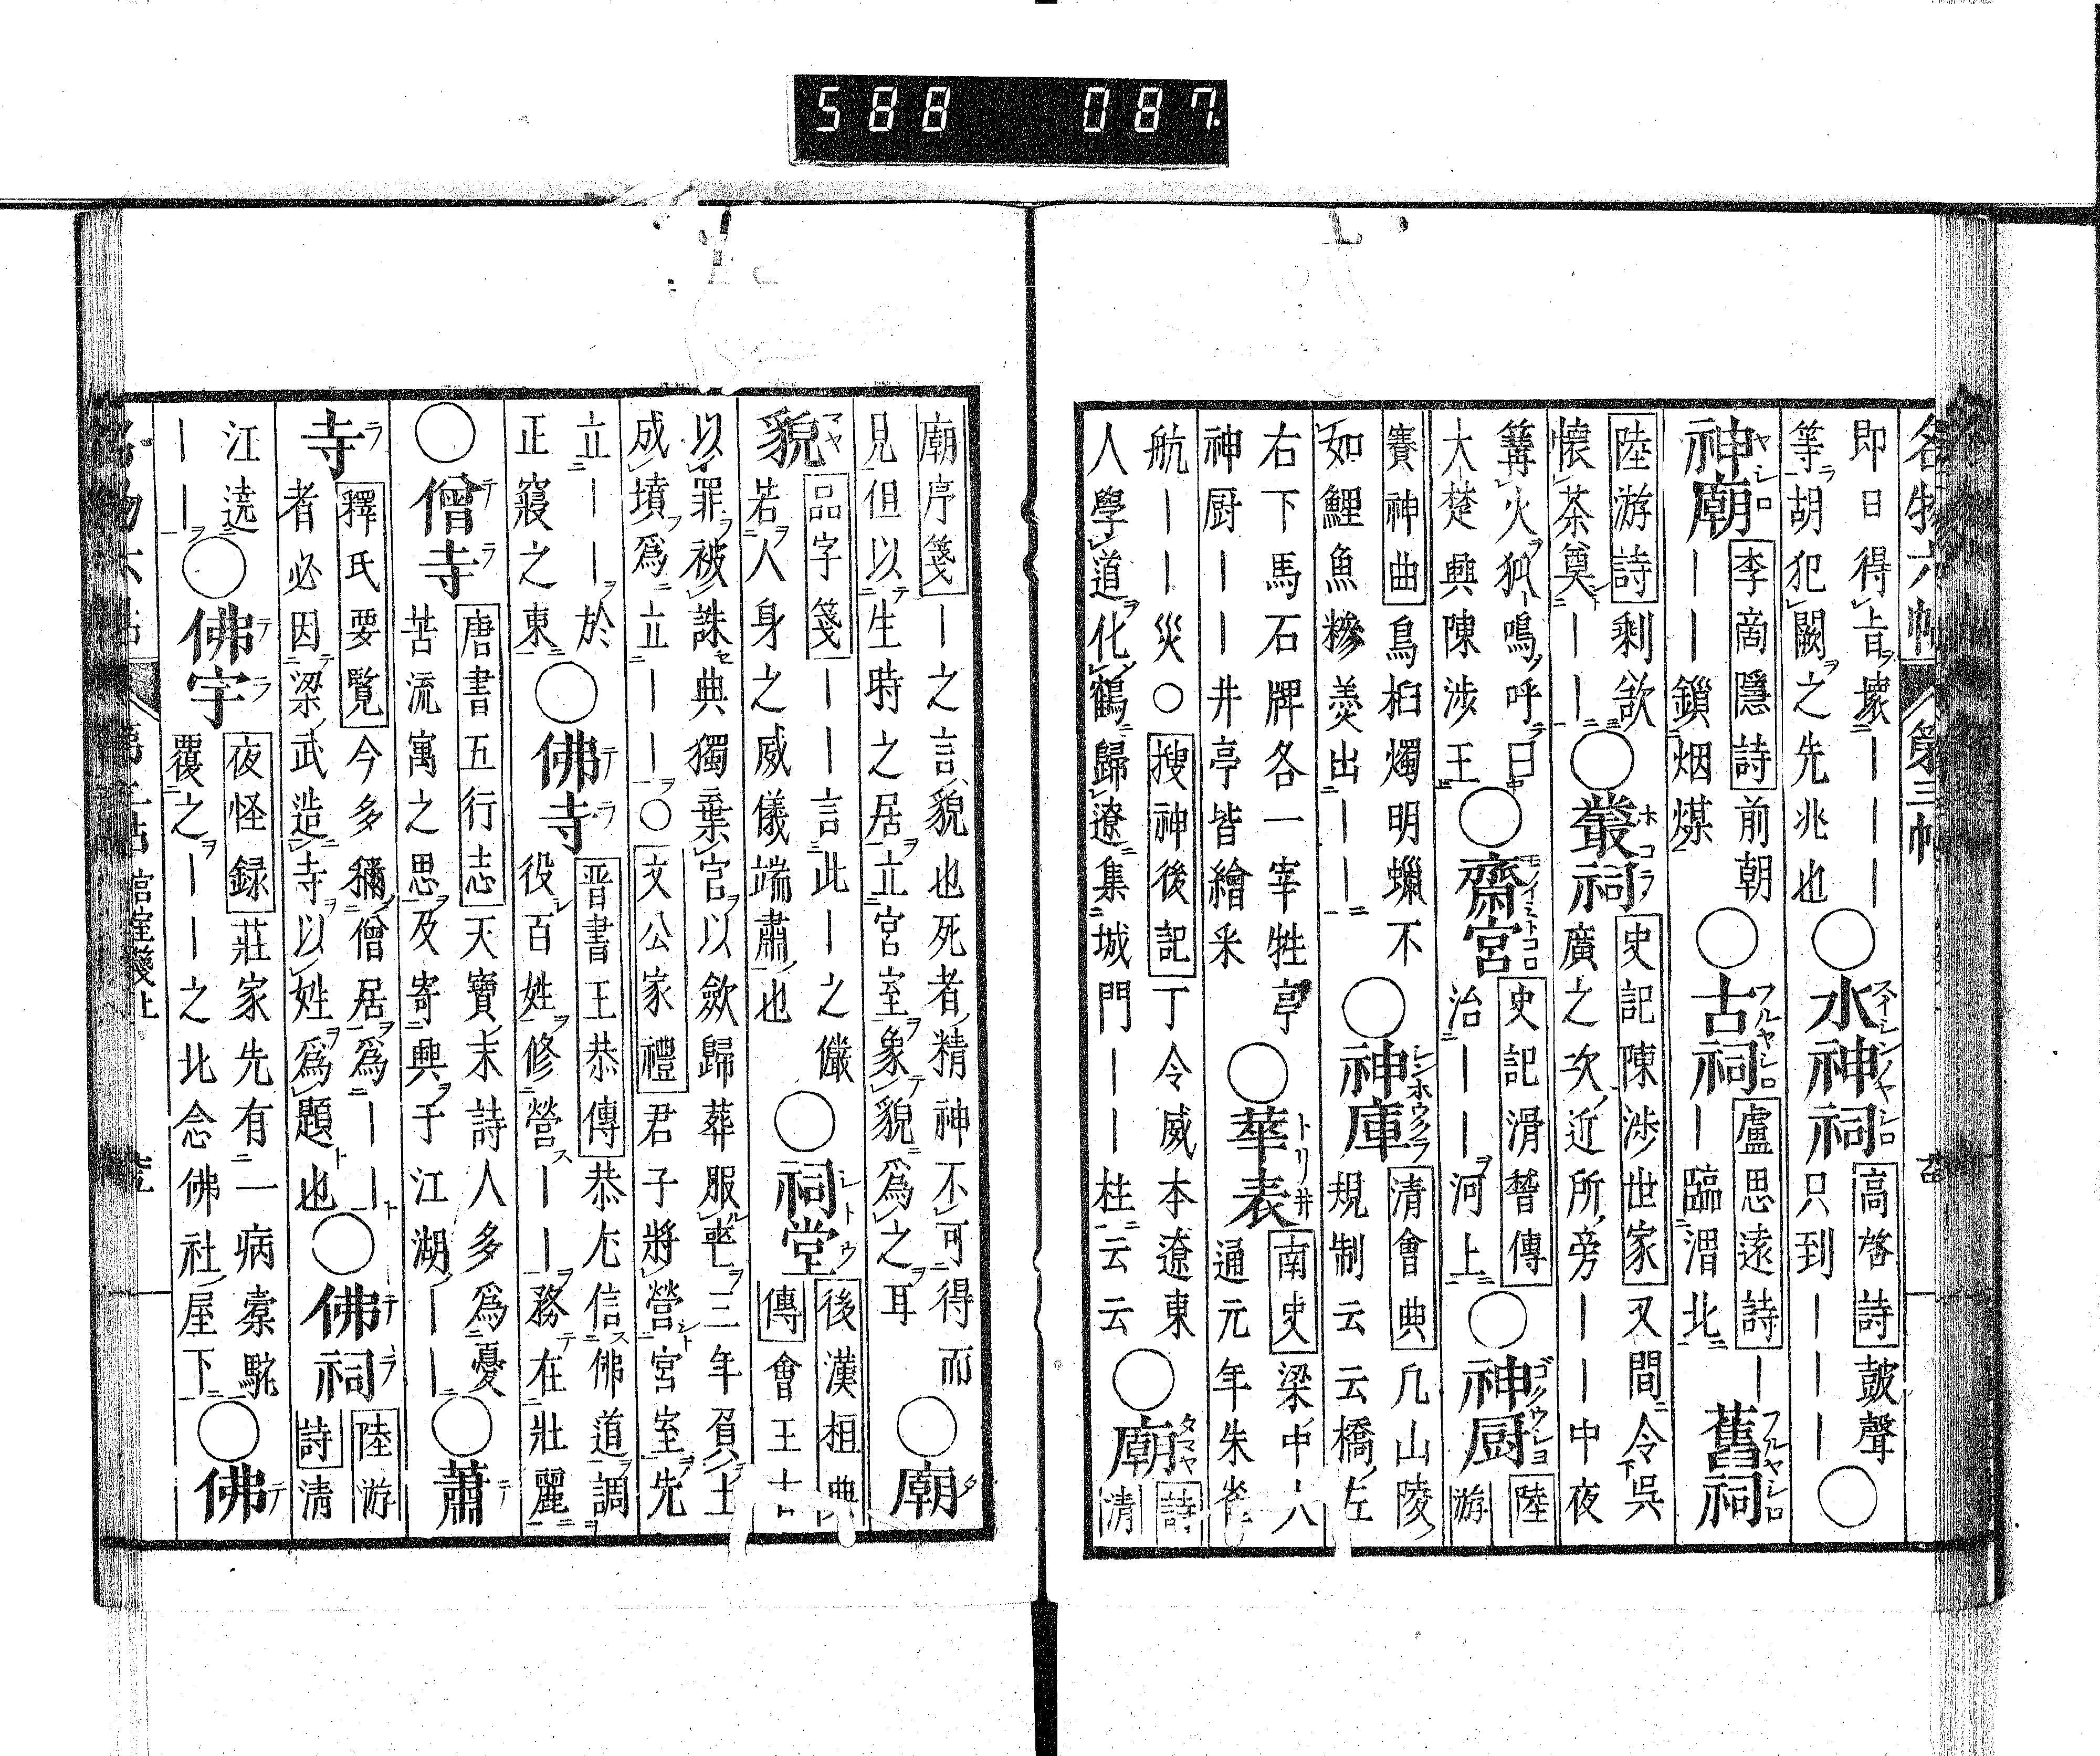 588 087.
名物六帖 第三帖
即日得旨壞｜｜｜
等胡犯闕之先兆也○水神祠高啓詩皷聲
只到｜｜｜○
神廟李商隱詩前朝
｜｜鎖烟煤○古祠盧思遠詩｜
｜臨渭北 舊祠
陸游詩剩欲
懷茶奠｜｜○叢祠史記陳渉世家又間令吳
廣之次近所旁｜｜中夜
篝火狐鳴呼曰
大楚興陳涉王○齋宮史記滑稽傳
治｜｜河上○神厨陸游
賽神曲烏桕燭明蠟不
如鯉魚糝羮出｜｜○神庫清會典凡山陵
規制云云橋左
右下馬石牌各一宰牲亭
神厨｜｜井亭皆繪采○華表南史梁中大
通元年朱雀
航｜｜災○搜神後記丁令威本遼東
人學道化鶴歸遼集城門｜｜柱云云○廟詩清
廟序箋｜之言貌也死者精神不可得而
見但以生時之居立宮室象貌爲之耳○廟
貌品字箋｜｜言此｜之儼
若人身之威儀端肅也○祠堂後漢桓典傳
會王吉
以罪被誅典獨棄官以歛歸葬服喪三年負土
成墳爲立｜｜○文公家禮君子將營宮室先
立｜｜於
正寢之東○佛寺晋書王恭傳恭尤信佛道調
役百姓修營｜｜務在壯麗
○僧寺唐書五行志天寶末詩人多爲憂
苦流寓之思及寄興于江湖｜｜○蕭
寺釋氏要覽今多稱僧居爲｜｜
者必因梁武造寺以姓爲題也○佛祠陸游詩清
江遶
｜｜○佛宇夜怪録莊家先有一病橐駝
覆之｜｜之北念佛社屋下○佛